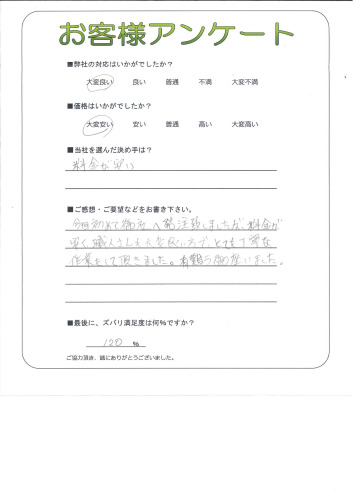 お客様アンケート
■弊社の対応はいかがでしたか?
大変良い 良い 普通 不満 大変不満
■価格はいかがでしたか?
大変安い 安い 普通 高い 大変高い
■当社を選んだ決め手は?
料金が安い
■ご感想・ご要望などをお書き下さい。
今回初めて御社へ発注致しましたが、料金が
安く、職人さんも大変良い方で、とても丁寧な
作業をして頂きました。有難う御座いました。
■最後に、ズバリ満足度は何%ですか?
120 %
ご協力頂き、誠にありがとうございました。